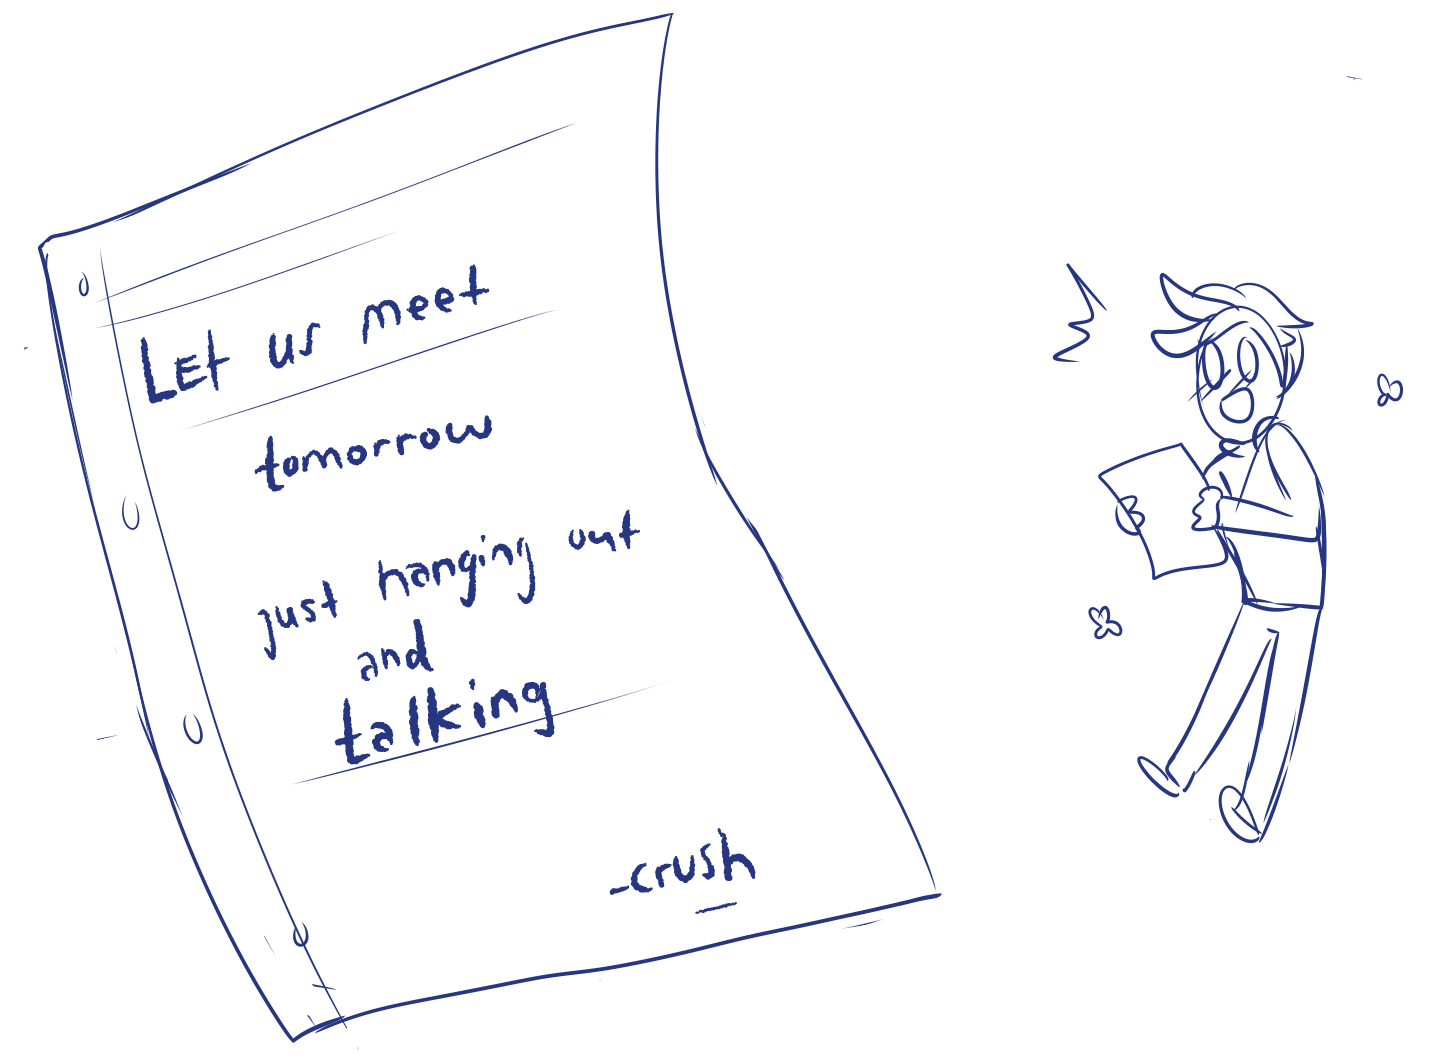 Let us meet
tomorrow
just hanging out
and
talking
-crush